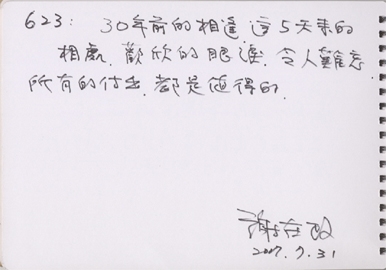 623: 30年前的相逢.這5天來的
相處.歡欣的眼淚.令人難忘
所有的付出.都是值得的.
2007.7.31